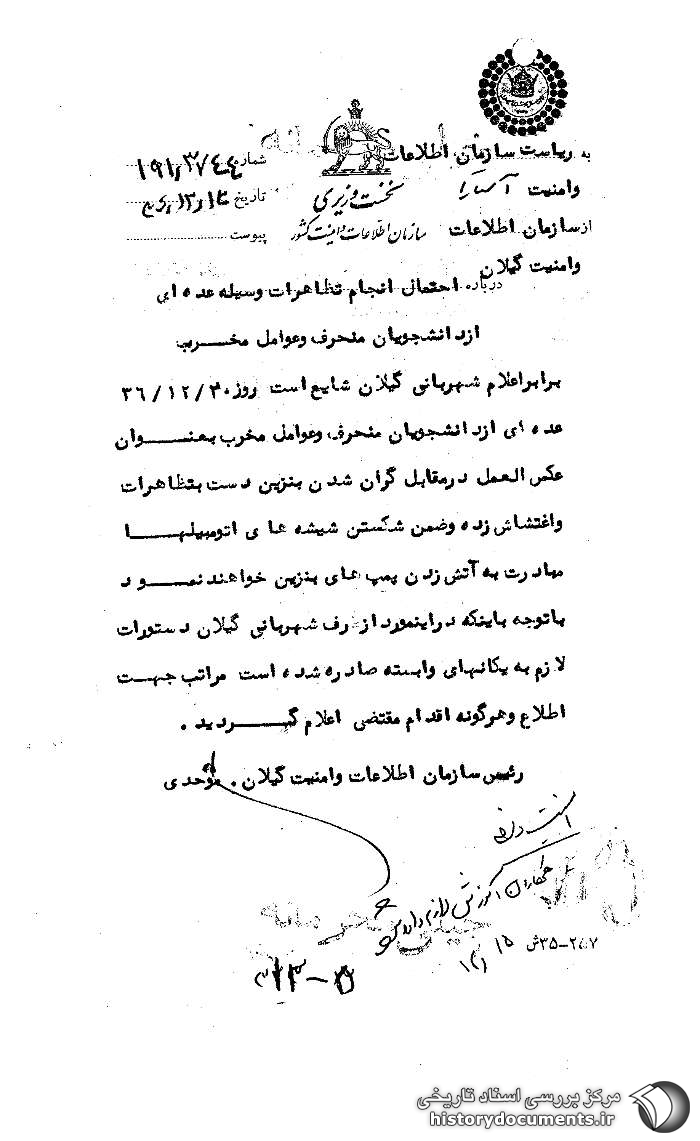 به ریاست سازمان اطلاعات
وامنیت آستارا
از سازمان اطلاعات
وامنیت گیلان
نخست وزیری
سازمان اطلاعات و امنیت کشور
شماره
تاریخ
پیوست
درباره احتمال انجام تظاهرات وسیله عده ای
ازدانشجویان منحرف وعوامل مخرب
برابراعلام شهربانی گیلان شایع است روز ۳۰/۱۲/۳۶
عده ای ازدانشجویان منحرف وعوامل مخرب بعنوان
عکس العمل درمقابل گران شدن بنزین دست بتظاهرات
واغتشاش زده وضمن شکستن شیشه های اتومبیلها
مبادرت به آتش زدن پمپ های بنزین خواهند نمود
باتوجه باینکه دراینمورد از طرف شهربانی گیلان دستورات
لازم به یکانهای وابسته صادره شده است مراتب جهت
اطلاع وهرگونه اقدام مقتضی اعلام گردید .
رئیس سازمان اطلاعات وامنیت گیلان . موحدی
خیلی محرمانه
۳۵-۲۵۷ش
مرکز بررسی اسناد تاریخی
historydocuments.ir